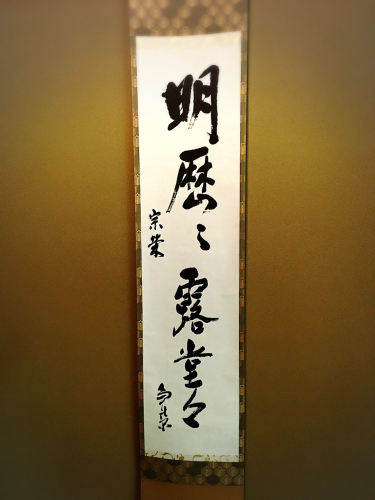 明歴々露堂々
宗業